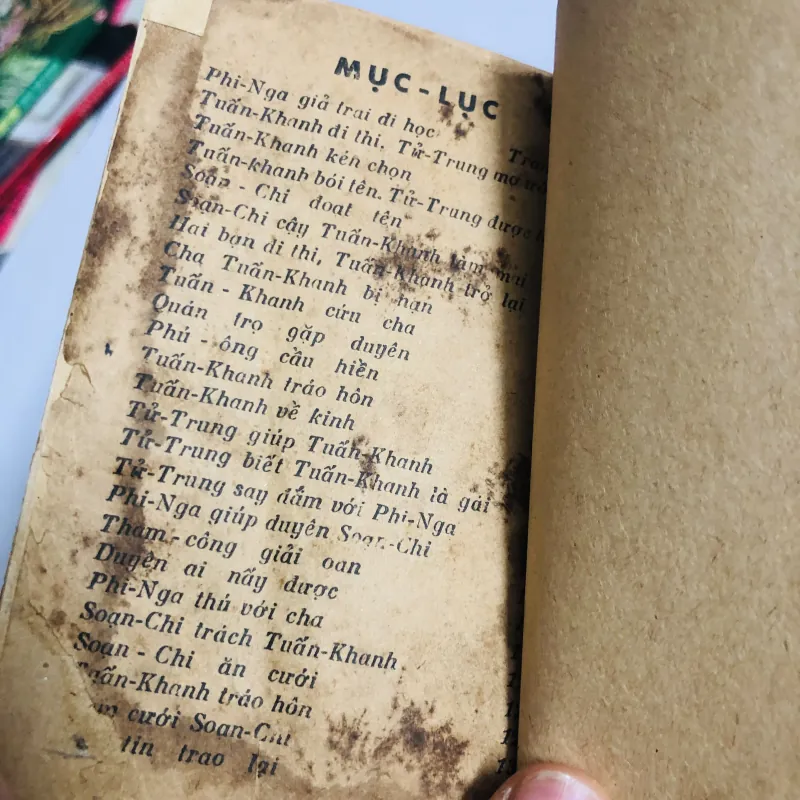 MỤC - LỤC
Phi-Nga giả trai đi học
Tuấn-Khanh đi thi, Tử-Trung mơ
Tuấn-Khanh kén chọn
Tuấn-khanh bói tên, Tử-Trung được
Soạn - Chi đoạt tên
Soạn-Chi cậy Tuấn-Khanh làm mai
Hai bạn đi thi, Tuấn-Khanh trở lại
Cha Tuấn-Khanh bị nạn
Tuấn - Khanh cứu cha
Quán trọ gặp duyên
Phú - ông cầu hiền
Tuấn-Khanh tráo hôn
Tuấn-Khanh về kinh
Tử-Trung giúp Tuấn-Khanh
Tử-Trung biết Tuấn-Khanh là gái
Tử-Trung say đắm với Phi-Nga
Phi-Nga giúp duyên Soạn-Chi
Tham - công giải oan
Duyên ai nấy được
Phi-Nga thú với cha
Soạn-Chi trách Tuấn-Khanh
Soạn - Chi ăn cưới
Tuấn-Khanh tráo hôn
cưới Soạn-Chi
tin trao lại